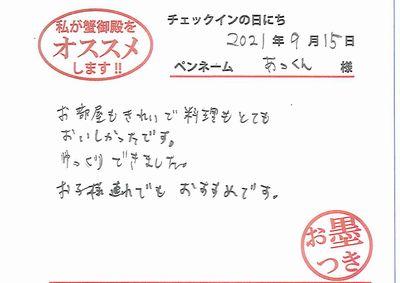 私が蟹御殿を
オススメ
します!!
チェックインの日にち
2021年9月15日
ペンネーム あっくん 様
お部屋もきれいで料理もとても
おいしかったです。
ゆっくりできました。
お子様連れでもおすすめです。
お墨
つき